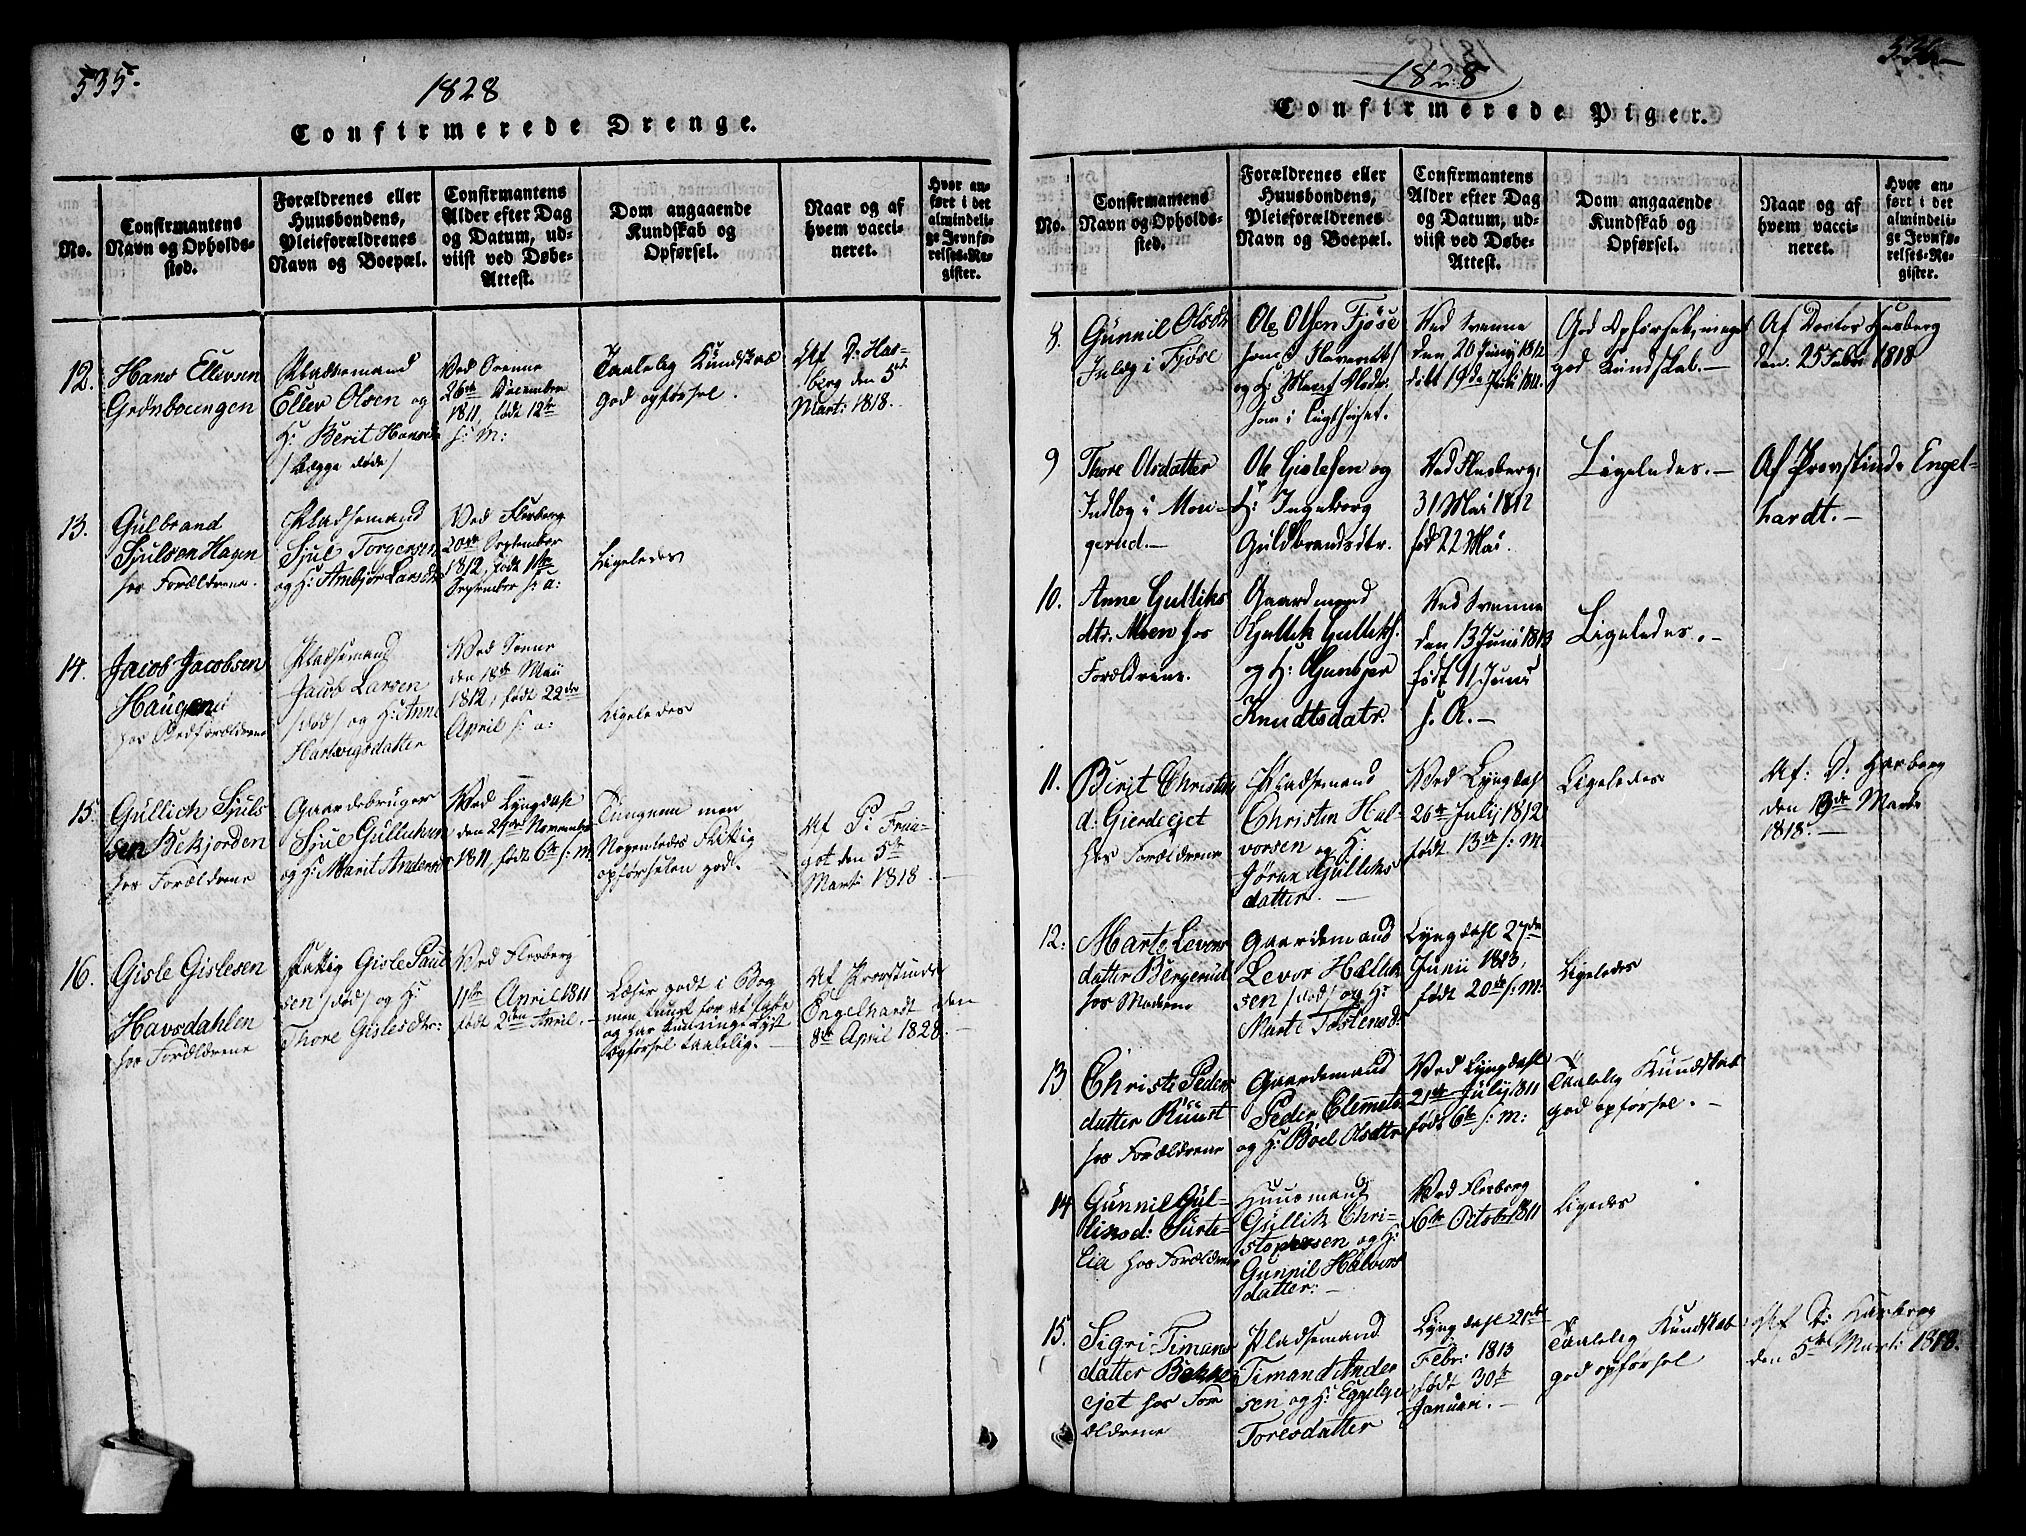 535.
1828
Confirmerede Drenge.
No.
Confirmantens
Navn og Opholds-
sted.
Forældrenes eller
Huusbondens,
Pleieforældrenes
Navn og Boepæl.
Confirmantens
Alder efter Dag
og Datum, ud-
viist ved Døbe-
Attest.
Dom angaaende
Kundskab og
Opførsel.
Naar og af
hvem vacci-
neret.
Hvor an-
ført i det
almindeli-
ge Jevnfø-
relses-Re-
gister.
12.
Hans Ellevsen
Grønbøungen
Pladsemand
Ellev Olsen og
H: Berit Hans
/ begge døde /
Ved Svenne
26de December
1811, født 12te
s: m:
Taalelig Kundskab
god opførsel.
Af D: Has-
berg den 5te
Marti 1818.
13.
Gulbrand
Sjulsen Hagen
hos Forældrene.
Pladsemand
Sjul Torgersen
og H: Ambjør Larsdtr
Ved Flesberg
20de September
1812, født 1ste
September s: a:
Ligeledes
14.
Jacob Jacobsen
Haugen
hos Forældrene
Pladsemand
Jacob Larsen
/død/ og H: Anne
Hartvigsdatter
Ved Svenne
den 18de Maii
1812, født 22de
April s: a:
Ligeledes
15.
Gullich Sjuls
sen Bekjorden
hos Forældrene
Gaardebruger
Sjul Gullichsen
og H: Marit Anders
Ved Lyngdahl
den 24de November
1811, født 6te s: m:
Tungnem men
Nogenledes flittig
opførselen god.
Af P: Frau-
got den 5te
Marti 1818.
16.
Gisle Gislesen
Havsdahlen
hos Forældrene
Fattig Gisle Paul
sen /død/ og H:
Thore Gislesdtr:
Ved Flesberg
11te April 1811
født 2den April.
Læser godt i Bog
og har
opførsel taalelig.
Af Provstinde
Engelhardt den
8de April 1828.
536
1828
Confirmerede Piger.
No.
Confirmantens
Navn og Opholds-
sted.
Forældrenes eller
Huusbondens,
Pleieforældrenes
Navn og Boepæl.
Confirmantens
Alder efter Dag
og Datum, ud-
viist ved Døbe-
Attest.
Dom angaaende
Kundskab og
Opførsel.
Naar og af
hvem vacci-
neret.
Hvor an-
ført i det
almindeli-
ge Jevnfø-
relses-Re-
gister.
8.
Gunnil Olsdtr
Indlg i Fjøse
Ole Olsen Fjøse
som i Slaveriet
og H:
som i Tugthuset.
Ved Svenne
den 20 Juny 1812
født 19de
God Opførsel, meget
god Kundskab.
Af Doctor Hasberg
den 25 Febr 1818
9
Thore Olsdatter
Indlæg i Mon-
gerud.
Ole Gislesen og
H: Ingeborg
Guldbrandsdtr.
Ved Flesberg
31 Mai 1812
fød 22 Mai.
Ligeledes.
Af Provstinde Engel-
hardt.
10.
Anne Gulliks
dtr. Moen hos
Forældrene.
Gaardmand
Gullik Gulliks.
og H: Gunbjør
Knudtsdatr.
Ved Svenne
den 13 Juni 1813
født 11 Juni
s. A.
Ligeledes.
11.
Berit Christens
d: Gierdeejet
hos Forældrene
Pladsemand
Christen Hal-
vorsen og H:
Jøran Gulliks
datter.
Ved Lyngdahl
26de July 1812
født 13de s: m:
Ligeledes
Af: D: Hasberg
den 19de Marti
1818.
12:
Marte Levors
datter Bergerud
hos Moderen
Gaardemand
Levor Hallik
sen /død/ og H:
Marte Tostensd:
Lyngdahl 27de
Junii 1813,
født 20de s: m:
Ligeledes
13
Christi Peders
datter Ruust
hos Forældrene
Gaardemand
Peder Clemets.
og H: Boel Olsdtr.
Ved Lyngdahl
21de July 1811
født 6te s: m:
Taalelig Kundskab
god opførsel.
14
Gunnil Gul-
liksd: Surte-
lia hos Forældrene
Huusmand
Gullik Chri-
stophersen og H:
Gunnil Halvors
datter:
Ved Flesberg
6te October 1811
Ligedes
15.
Sigri Timans
datter Bekke
ejet hos For
ældrene
Pladsemand
Timand Ander
sen og H: Eggelye
Toresdatter
Lyngdahl 21de
Febr: 1813
født 30te
Januar.
Taalelig Kundskab
god opførsel
Af D: Hasberg
den 5te Marti 1818.